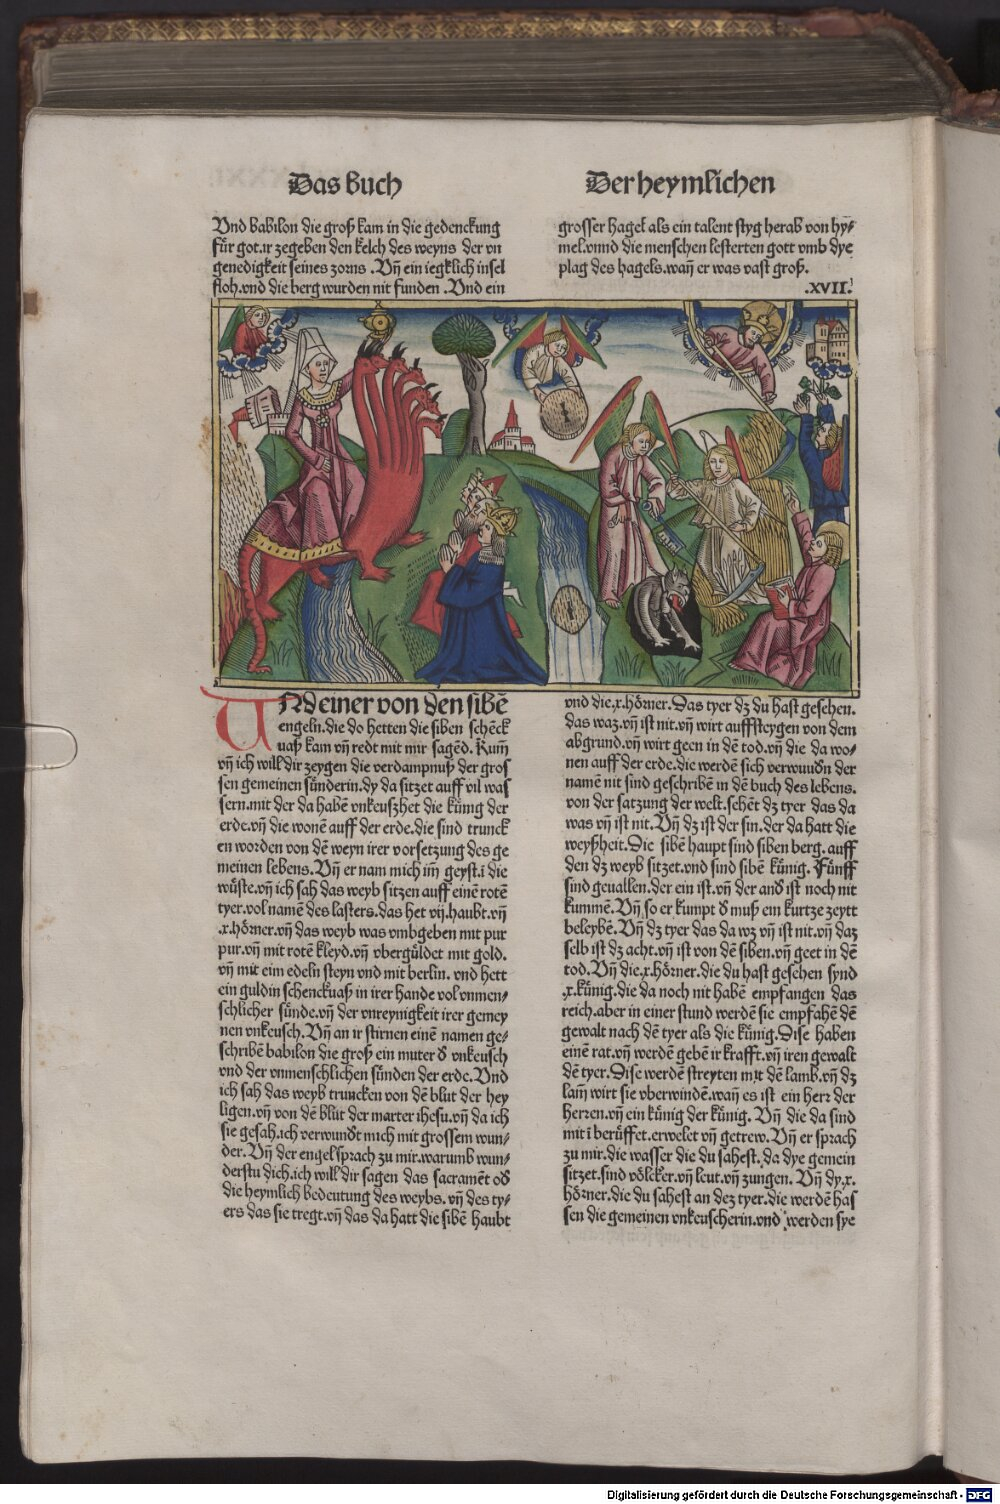 Das Buch
Der heymlichen
Vnd babilon die groß kam in die gedenckung
für got.ir zegeben den kelch des weyns der vn
genedigkeit seines zorns .Vn̄ ein iegklich insel
floh.vnd die berg wurden nit funden .Vnd ein
grosser hagel als ein talent styg herab von hy⸗
mel.vnnd die menschen lesterten gott vmb dye
plag des hagels.wan̄ er was vast groß.
.XVII.
VNd einer von den sibē
engeln.die do hetten die siben schēck
uaß kam vn̄ redt mit mir sagēd. Kum̄
vn̄ ich will dir zeygen die verdampnuß der gros
sen gemeinen sünderin.dy da sitzet auff vil was
sern.mit der da habē vnkeuszhet die künig der
erde.vn̄ die wonē auff der erde.die sind trunck
en worden von dē weyn irer vorsetzung des ge
meinen lebens. Vn̄ er nam mich im̄ geyst.ī die
wüste.vn̄ ich sah das weyb sitzen auff einē rotē
tyer.vol namē des lasters.das het vij.haubt.vn̄
.x.hörner.vn̄ das weyb was vmbgeben mit pur
pur.vn̄ mit rotē kleyd.vn̄ vbergüldet mit gold.
vn̄ mit eim edeln steyn vnd mit berlin. vnd hett
ein guldin schenckuaß in irer hande vol vnmen⸗
schlicher sünde.vn̄ der vnreynigkeit irer gemey
nen vnkeusch. Vn̄ an ir stirnen einē namen ge⸗
schribē babilon die groß ein muter đ vnkeusch
vnd der vnmenschlichen sünden der erde. Vnd
ich sah das weyb truncken von dē blut der hey
ligen.vn̄ von dē blüt der marter ihesu.vn̄ da ich
sie gesah.ich verwundt mich mit grossem wun⸗
der. Vn̄ der engel sprach zu mir.warumb wun⸗
derstu dich.ich will dir sagen das sacramēt ođ
die heymlich bedeutung des weybs. vn̄ des ty⸗
ers das sie tregt.vn̄ das da hatt die sibē haubt
vnd die.x.hörner. Das tyer dz du hast gesehen.
das waz.vn̄ ist nit.vn̄ wirt auffsteygen von dem
abgrund.vn̄ wirt geen in dē tod.vn̄ die da wo⸗
nen auff der erde.die werdē sich verwundn der
namē nit sind geschribē in dē buch des lebens.
von der satzung der welt.sehēt dz tyer das da
was vn̄ ist nit. Vn̄ dz ist der sin.der da hatt die
weyßheit. Die sibē haupt sind siben berg. auff
den dz weyb sitzet.vnd sind sibē künig. Fünff
sind geuallen.der ein ist.vn̄ der and ist noch nit
kummē. Vn̄ so er kumpt đ muß ein kurtze zeytt
beleybē. Vn̄ dz tyer das da wz vn̄ ist nit.vn̄ daz
selb ist dz acht.vn̄ ist von dē siben.vn̄ geet in dē
tod. Vn̄ die.x.hörner.die du hast gesehen synd
.x.künig.die da noch nit habē empfangen das
reich.aber in einer stund werdē sie empfahē dē
gewalt nach dē tyer als die künig. Dise haben
einē rat.vn̄ werdē gebē ir krafft.vn̄ iren gewalt
dē tyer. Dise werdē streyten mit dē lamb.vn̄ dz
lam̄ wirt sie vberwindē.wan̄ es ist ein herr der
herren.vn̄ ein künig der künig. Vn̄ die da sind
mit ī berüffet.erwelet vn̄ getrew. Vn̄ er sprach
zu mir.die wasser die du sahest. da dye gemein
sitzet.sind völcker.vn̄ leut.vn̄ zungen. Vn̄ dy.x.
hörner.die du sahest an dez tyer.die werdē has
sen die gemeinen vnkeuscherin.vnd werden sye
Digitalisierung gefördert durch die Deutsche Forschungsgemeinschaft - DFG